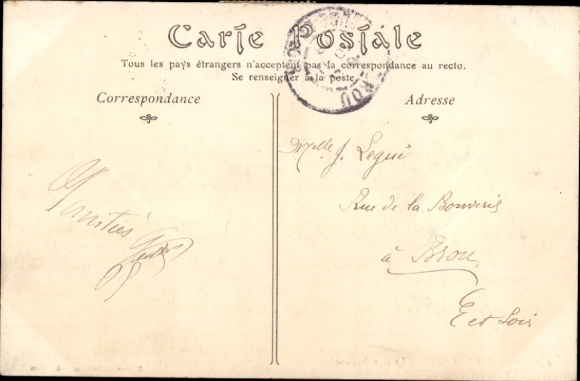 Carte Postale
Tous les pays étrangers n'acceptent pas la correspondance au recto.
Se renseigner à la poste.
Correspondance
Adresse
Amitiés
Melle J. Legué
Rue de la Bouverie
à Brou
E et Loir
BROU